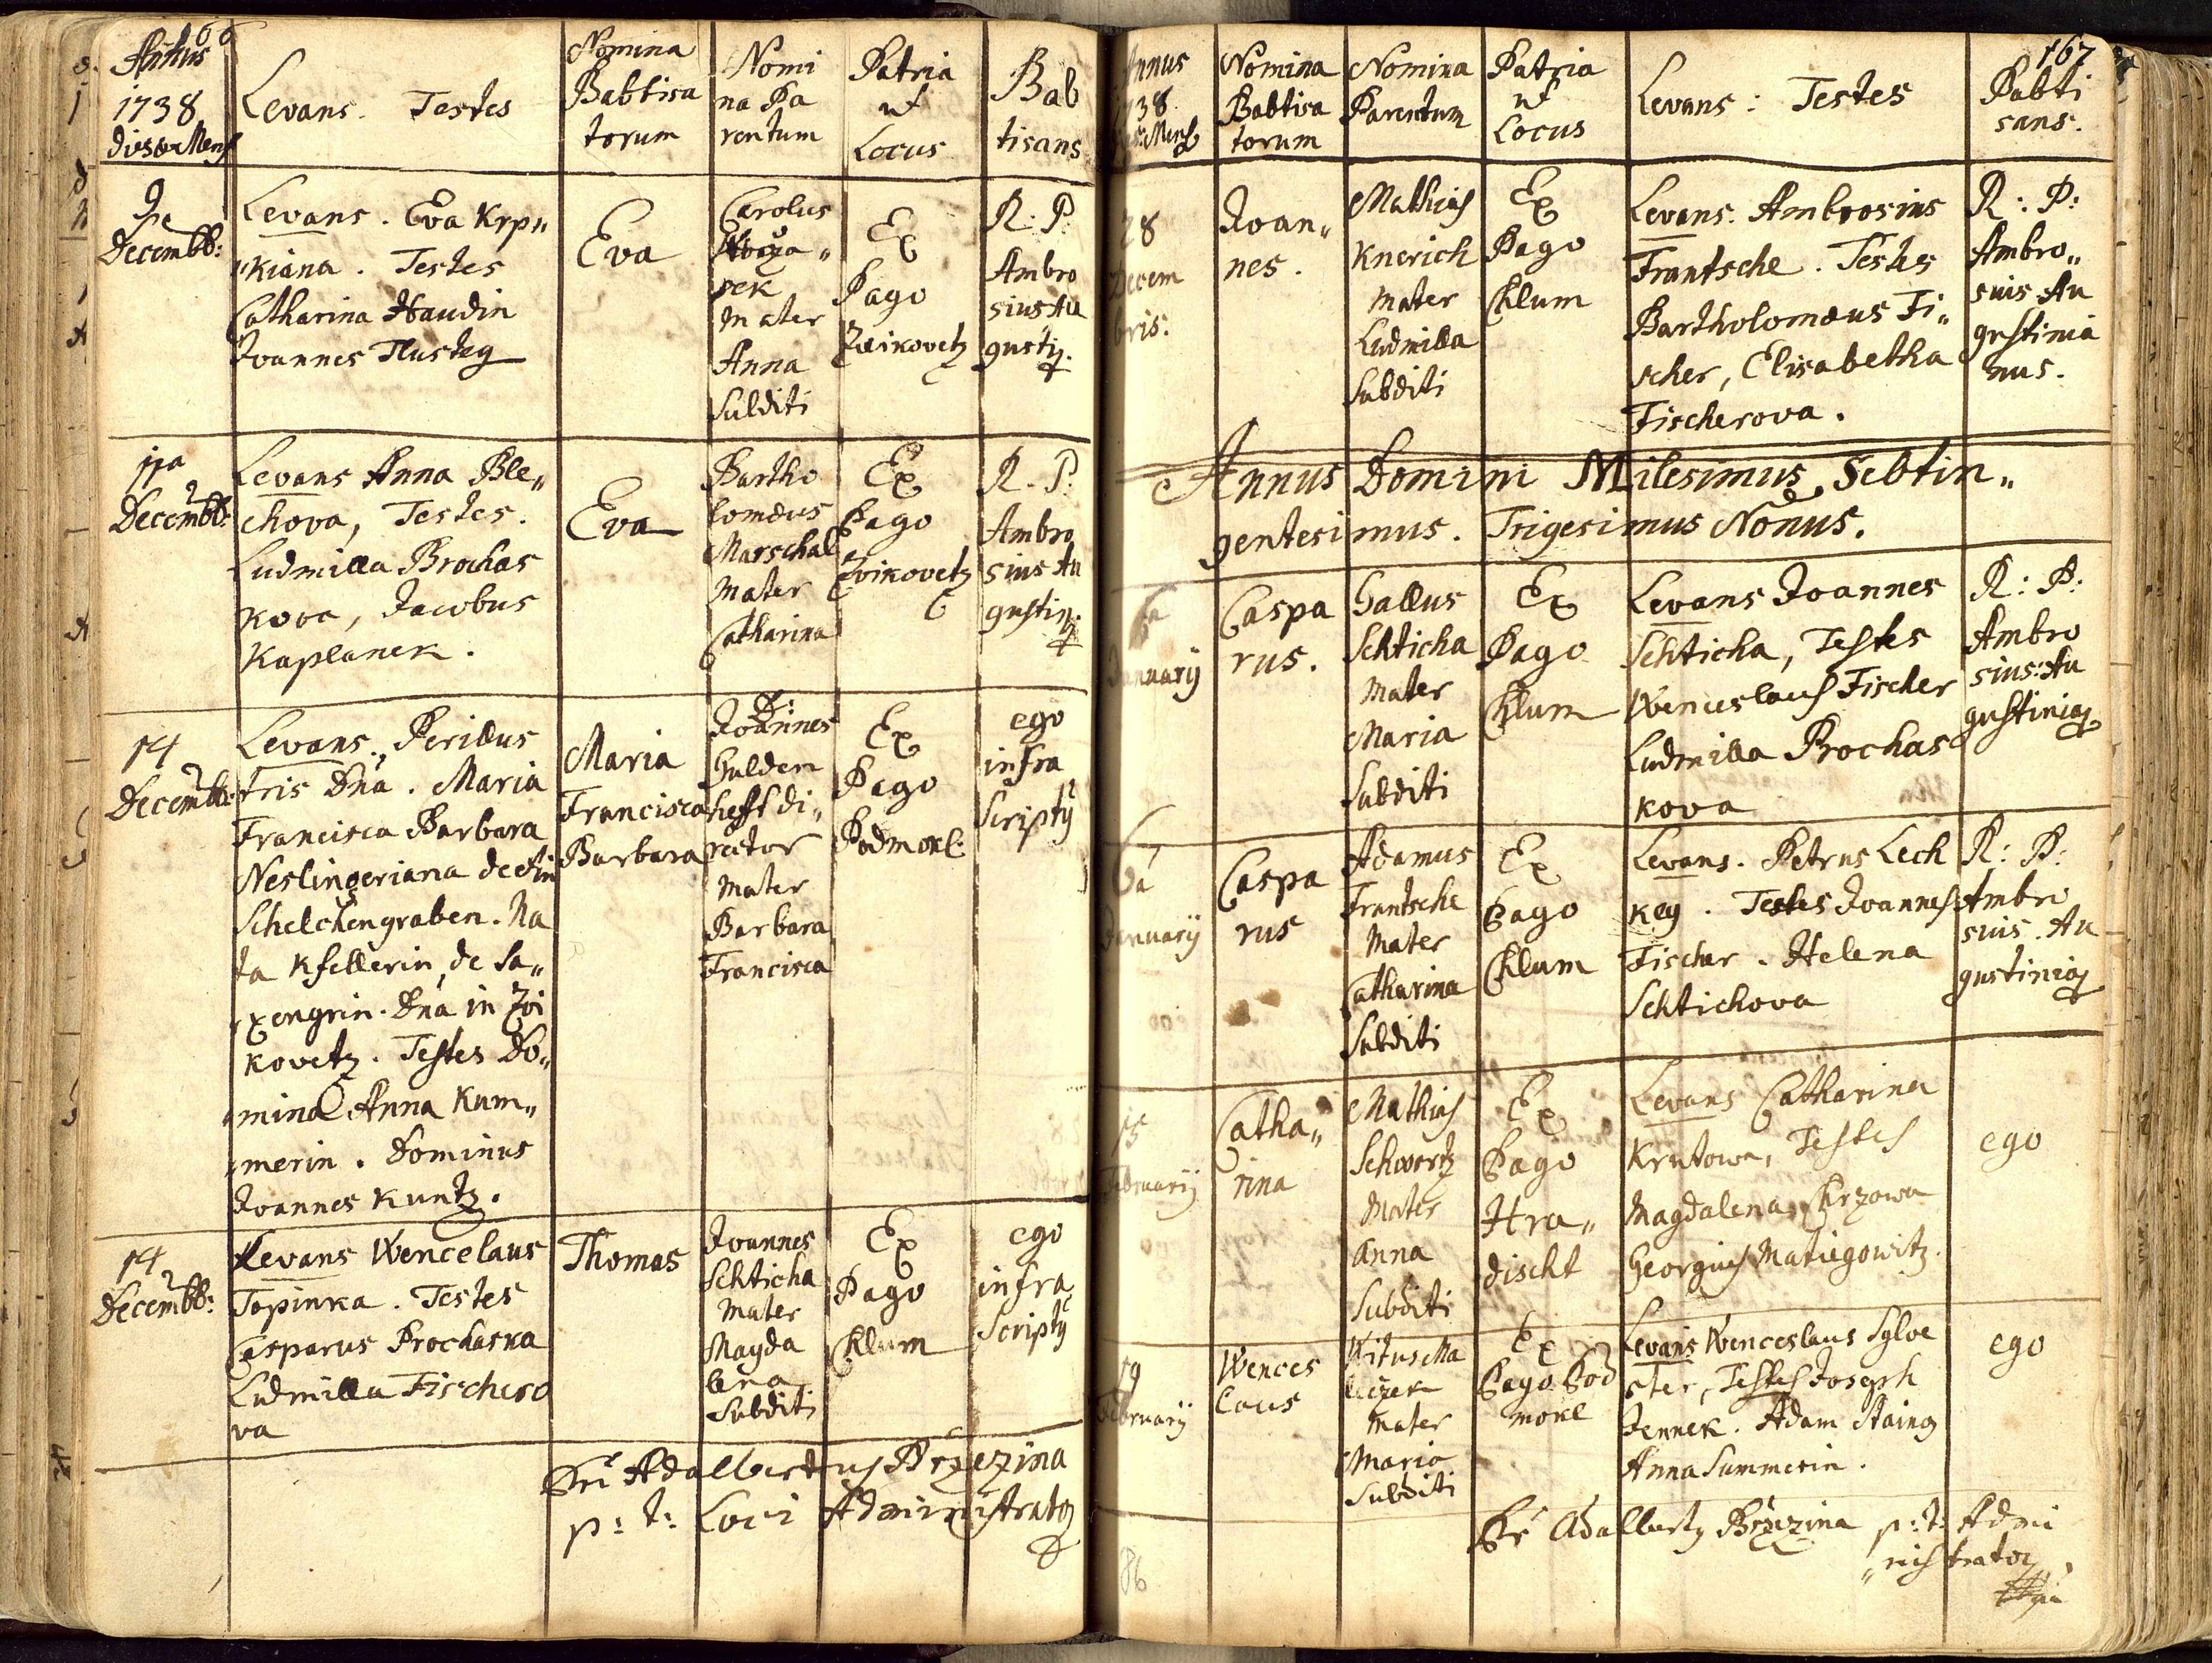 66
Annus
1738
dies & Mens
Levans. Testes
Nomina
Babtisa
torum
Nomi
na Pa
rentum
Patria
et
Locus
Bab
tisans
9
Decembb:
Levans. Eva Krp„
„kiana. Testes
Catharina Haudin
Joannes Tlusteg
Eva
Carolus
pek
Mater
Anna
Subditi
Ex
Pago
Zwikovetz
R. P.
Ambro
sius Au
gustin.
11a
Decembb:
Levans Anna Ble„
chova, Testes.
Ludmilla Brochas
kova, Jacobus
Kaplanek.
Eva
Bartho
lomæus
Marschal
Mater
Catharina
Ex
Pago
Zvikovetz
R. P.
Ambro
sius Au
gustin.
14
Decembb:
Levans. Perillus
tris Dna. Maria
Francisca Barbara
Neslingeriana de et in
Schelchengraben. Na
ta Kfellerin, de Sa„
xengrin. Dna in Zvi
kovetz. Testes Do„
mina Anna Kum„
„merin. Dominus
Joannes Kuntz.
Maria
Francisca
Barbara
D:
Joannes
Gulden
hefft di„
rector
Mater
Barbara
Francisca
Ex
Pago
Podmokl:
ego
infra
Scripty
14
Decembb:
Levans Wencelaus
Topinka. Testes
Casparus Prochaska
Ludmilla Fischero
va
Thomas
Joannes
Schticha
Mater
Magda
lena
Subditi
Ex
Pago
Chlum
ego
infra
Scripty
Fr Adalbertus Brzezina
p: t: Loci Administrator
167
Annus
1738
dies: Mens
Nomina
Babtisa
torum
Nomina
Parentum
Patria
et
Locus
Levans: Testes
Babti
sans.
28
Decem
bris:
Joan„
nes.
Mathias
Knerich
Mater
Ludmilla
Subditi
Ex
Pago
Chlum
Levans. Ambrosius
Frantsche. Testes
Bartholomæus Fi„
scher, Elisabetha
Fischerova.
R: P:
Ambro„
sius Au
gustinia
nus.
Annus Domini Milesimus Sebtin„
gentesimus. Trigesimus Nonus.
6a
Januarij
Caspa
rus.
Gallus
Schticha
Mater
Maria
Subditi
Ex
Pago
Chlum
Levans Joannes
Schticha, Testes
Wenceslaus Fischer
Ludmilla Brochas
kova
R: P:
Ambro
sius: Au
gustinia
6a
Januarij
Caspa
rus
Adamus
Frantsche
Mater
Catharina
Subditi
Ex
Pago
Chlum
Levans. Petrus Lech
key. Testes Joannes
Fischer. Helena
Schtichova
R: P:
Ambro
sius. Au
gustinia
15
Februarij
Catha„
rina
Mathias
Schwartz
Mater
Anna
Subditi
Ex
Pago
Hra„
discht
Levans Catharina
Krutowa, Testes
Magdalena Chrzowa
Georgius Matiegowitz.
ego
19
Februarij
Wences
laus
Witus Ma
Mater
Maria
Subditi
Ex
Pago Pod
mokl
Levans Wenceslaus Sylve
ster, Testes Joseph
Jennek. Adam Staing
Anna Summerin.
ego
Fr Adalberty Brzezina p: t: Admi
„nistrator
86